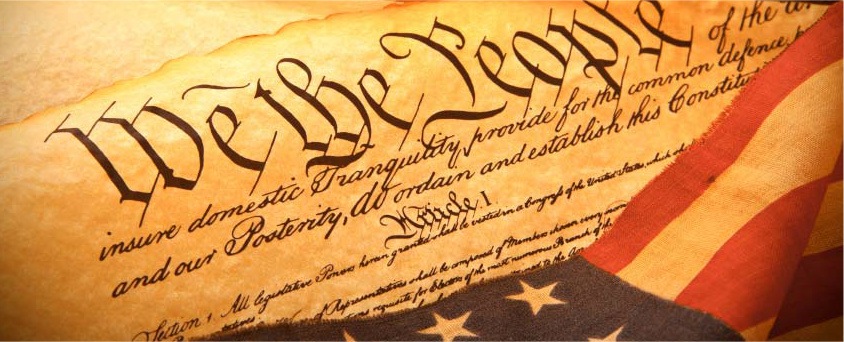 We the People of the
insure domestic Tranquility, provide for the common defence,
and our Posterity, do ordain and establish this Constitu
Article I
Section 1. All legislative Powers herein granted shall be vested in a Congress of the United States, which
of Representatives shall be composed of Members chosen every
requisite for Electors of the most numerous Branch of the